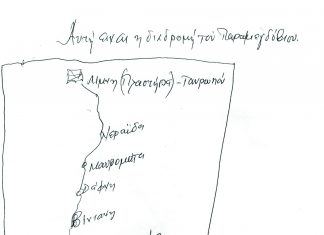 Αυτή είναι η διαδρομή του Παραμεγδόβιου.
Λίμνη (Πλαστήρα) - Ταυρωπού
Νεράιδα
Μαυρομάτα
Δάφνη
Βίνιανη